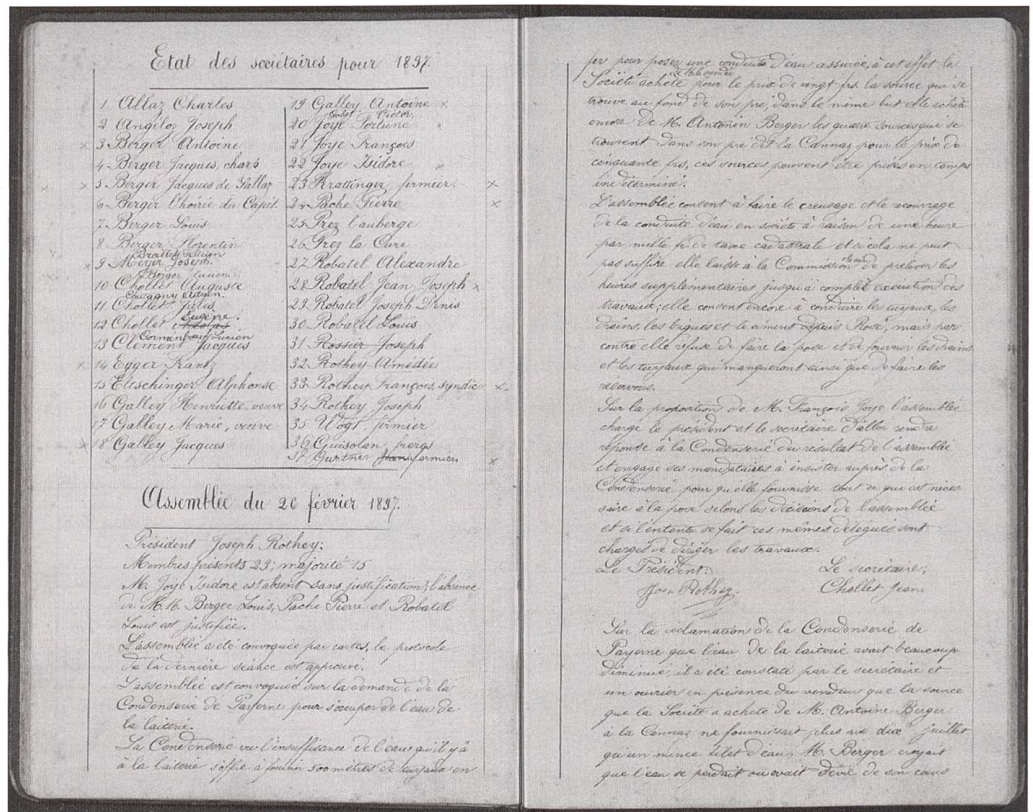 Etat des sociétaires pour 1897
1 Allaz Charles
2 Angéloz Joseph
3 Berger Antoine
4 Berger Jacques, chars
5 Berger Jacques de Vallaz
6 Berger Hoirie du Capit
7 Berger Louis
8 Berger Florentin
9 Meyer Joseph
Berger Lucien
10 Chollet Auguste
Chatagny Adrien.
11 Chollet Jules
Eugène.
12 Chollet
Cormenbœuf Lucien
13 Clément Jacques
14 Egger Frantz
15 Eltschinger Alphonse
16 Galley Henriette, veuve
17 Galley Marie, veuve
18 Galley Jacques
19 Galley Antoine
Victor
20 Joye Fortuné
21 Joye François
22 Joye Isidore
23 Krattinger, fermier.
24 Pache Pierre
25 Prez l'auberge
26 Prez la Cure
27 Robatel Alexandre
28 Robatel Jean Joseph
29 Robatel Joseph Denis
30 Robatel Louis
31 Rossier Joseph
32 Rothey Amédée
33 Rothey François, syndic
34 Rothey Joseph
35 Vögt, fermier
36 Guisolan, frères
37 Gurtner fermier
Assemblée du 20 février 1897.
Président Joseph Rothey:
Membres présents 29; majorité 15
M. Joye Isidore est absent sans justification; l'absence
de M.M. Berger Louis, Pache Pierre et Robatel
Louis est justifiée.
L'assemblée a été convoquée par cartes, le protocole
de la dernière séance est approuvé.
L'assemblée est convoquée sur la demande de la
Condenserie de Payerne pour s'occuper de l'eau de
la laiterie.
La Condenserie vu l'insuffisence de l'eau qu'il y a
à la laiterie s'offre à fournir 500 mètres de tuyaux en
fer pour poser une conduite d'eau assurée, à cet effet la
Société achète pour le prix de vingt frs la source qui se
trouve au fond de son pré, dans le même but elle achète
encore de M. Antonin Berger les quatre sources qui se
trouvent dans son pré dit la Cannaz pour le prix de
cinquante frs, ces sources peuvent être prises en temps
indéterminé.
L'assemblée consent à faire le creusage et le recouvrage
de la conduite d'eau en société à raison de une heure
par mille fr de taxe cadastrale et si cela ne peut
pas suffire elle laisse à la Commission de prélever les
heures supplémentaires jusqu'à complète exécution des
travaux, elle consent encore à conduire les tuyaux, les
drains, les briques et le ciment depuis Rosé, mais par
contre elle refuse de faire la pose et de fournir les drains
et les tuyaux qui manqueront ainsi que de faire les
réservoirs.
Sur la proposition de M. François Joye l'assemblée
charge le président et le secrétaire d'aller rendre
réponse à la Condenserie du résultat de l'assemblée
et engage ces mandataires à insister auprès de la
Condenserie pour qu'elle fournisse tout ce qui est néces-
saire à la pose selons les décisions de l'assemblée
et si l'entente se fait ces mêmes délégués sont
chargés de diriger les travaux.
Le Président: Le secrétaire;
Jos. Rothey. Chollet Jean
Sur la réclamation de la Condenserie de
Payerne que l'eau de la laiterie avait beaucoup
diminué, il a été constaté par le secrétaire et
un ouvrier en présence du vendeur que la source
que la Société a acheté de M. Antoine Berger
à la Cannaz ne fournissait plus au dix juillet
qu'un mince filet d'eau. M. Berger croyait
que l'eau se perdait ou avait dévié de son cours